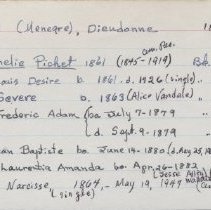 (Menegre), Dieudonne
melie Pichet 1861 (1845-1919) B
ouis Desire b. 1861. d. 1926 (single)
Severe b. 1863 (Alice Vandale)
Frederic Adam (bo July 9-1879
( d. Sept. 9-1879
ean Baptiste bo June 14-1880 (d. Aug 25, 18
haurentia Amanda bo Apr. 26-1882
Narcisse, 1864, - May 19, 1947
(single)